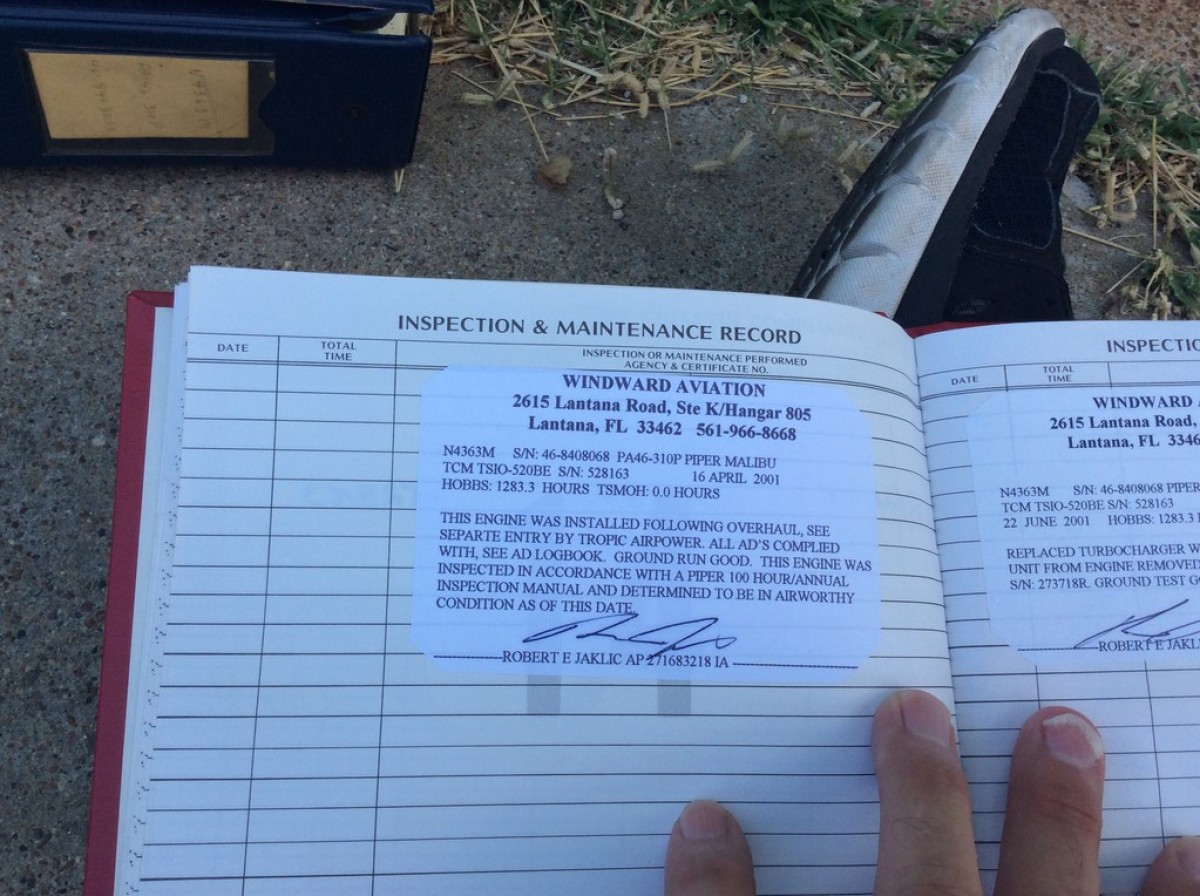 INSPECTION & MAINTENANCE RECORD
DATE
TOTAL
TIME
INSPECTION OR MAINTENANCE PERFORMED
AGENCY & CERTIFICATE NO.
WINDWARD AVIATION
2615 Lantana Road, Ste K/Hangar 805
Lantana, FL 33462 561-966-8668
N4363M S/N: 46-8408068 PA46-310P PIPER MALIBU
TCM TSIO-520BE S/N: 528163 16 APRIL 2001
HOBBS: 1283.3 HOURS TSMOH: 0.0 HOURS
THIS ENGINE WAS INSTALLED FOLLOWING OVERHAUL, SEE
SEPARTE ENTRY BY TROPIC AIRPOWER. ALL AD'S COMPLIED
WITH, SEE AD LOGBOOK. GROUND RUN GOOD. THIS ENGINE WAS
INSPECTED IN ACCORDANCE WITH A PIPER 100 HOUR/ANNUAL
INSPECTION MANUAL AND DETERMINED TO BE IN AIRWORTHY
CONDITION AS OF THIS DATE.
ROBERT E JAKLIC AP 271683218 IA
INSPECTIO
DATE
TOTAL
TIME
WINDWARD A
2615 Lantana Road,
Lantana, FL 3346
N4363M S/N: 46-8408068 PIPER
TCM TSIO-520BE S/N: 528163
22 JUNE 2001 HOBBS: 1283.3
REPLACED TURBOCHARGER W
UNIT FROM ENGINE REMOVED
S/N: 273718R. GROUND TEST G
ROBERT E JAKL